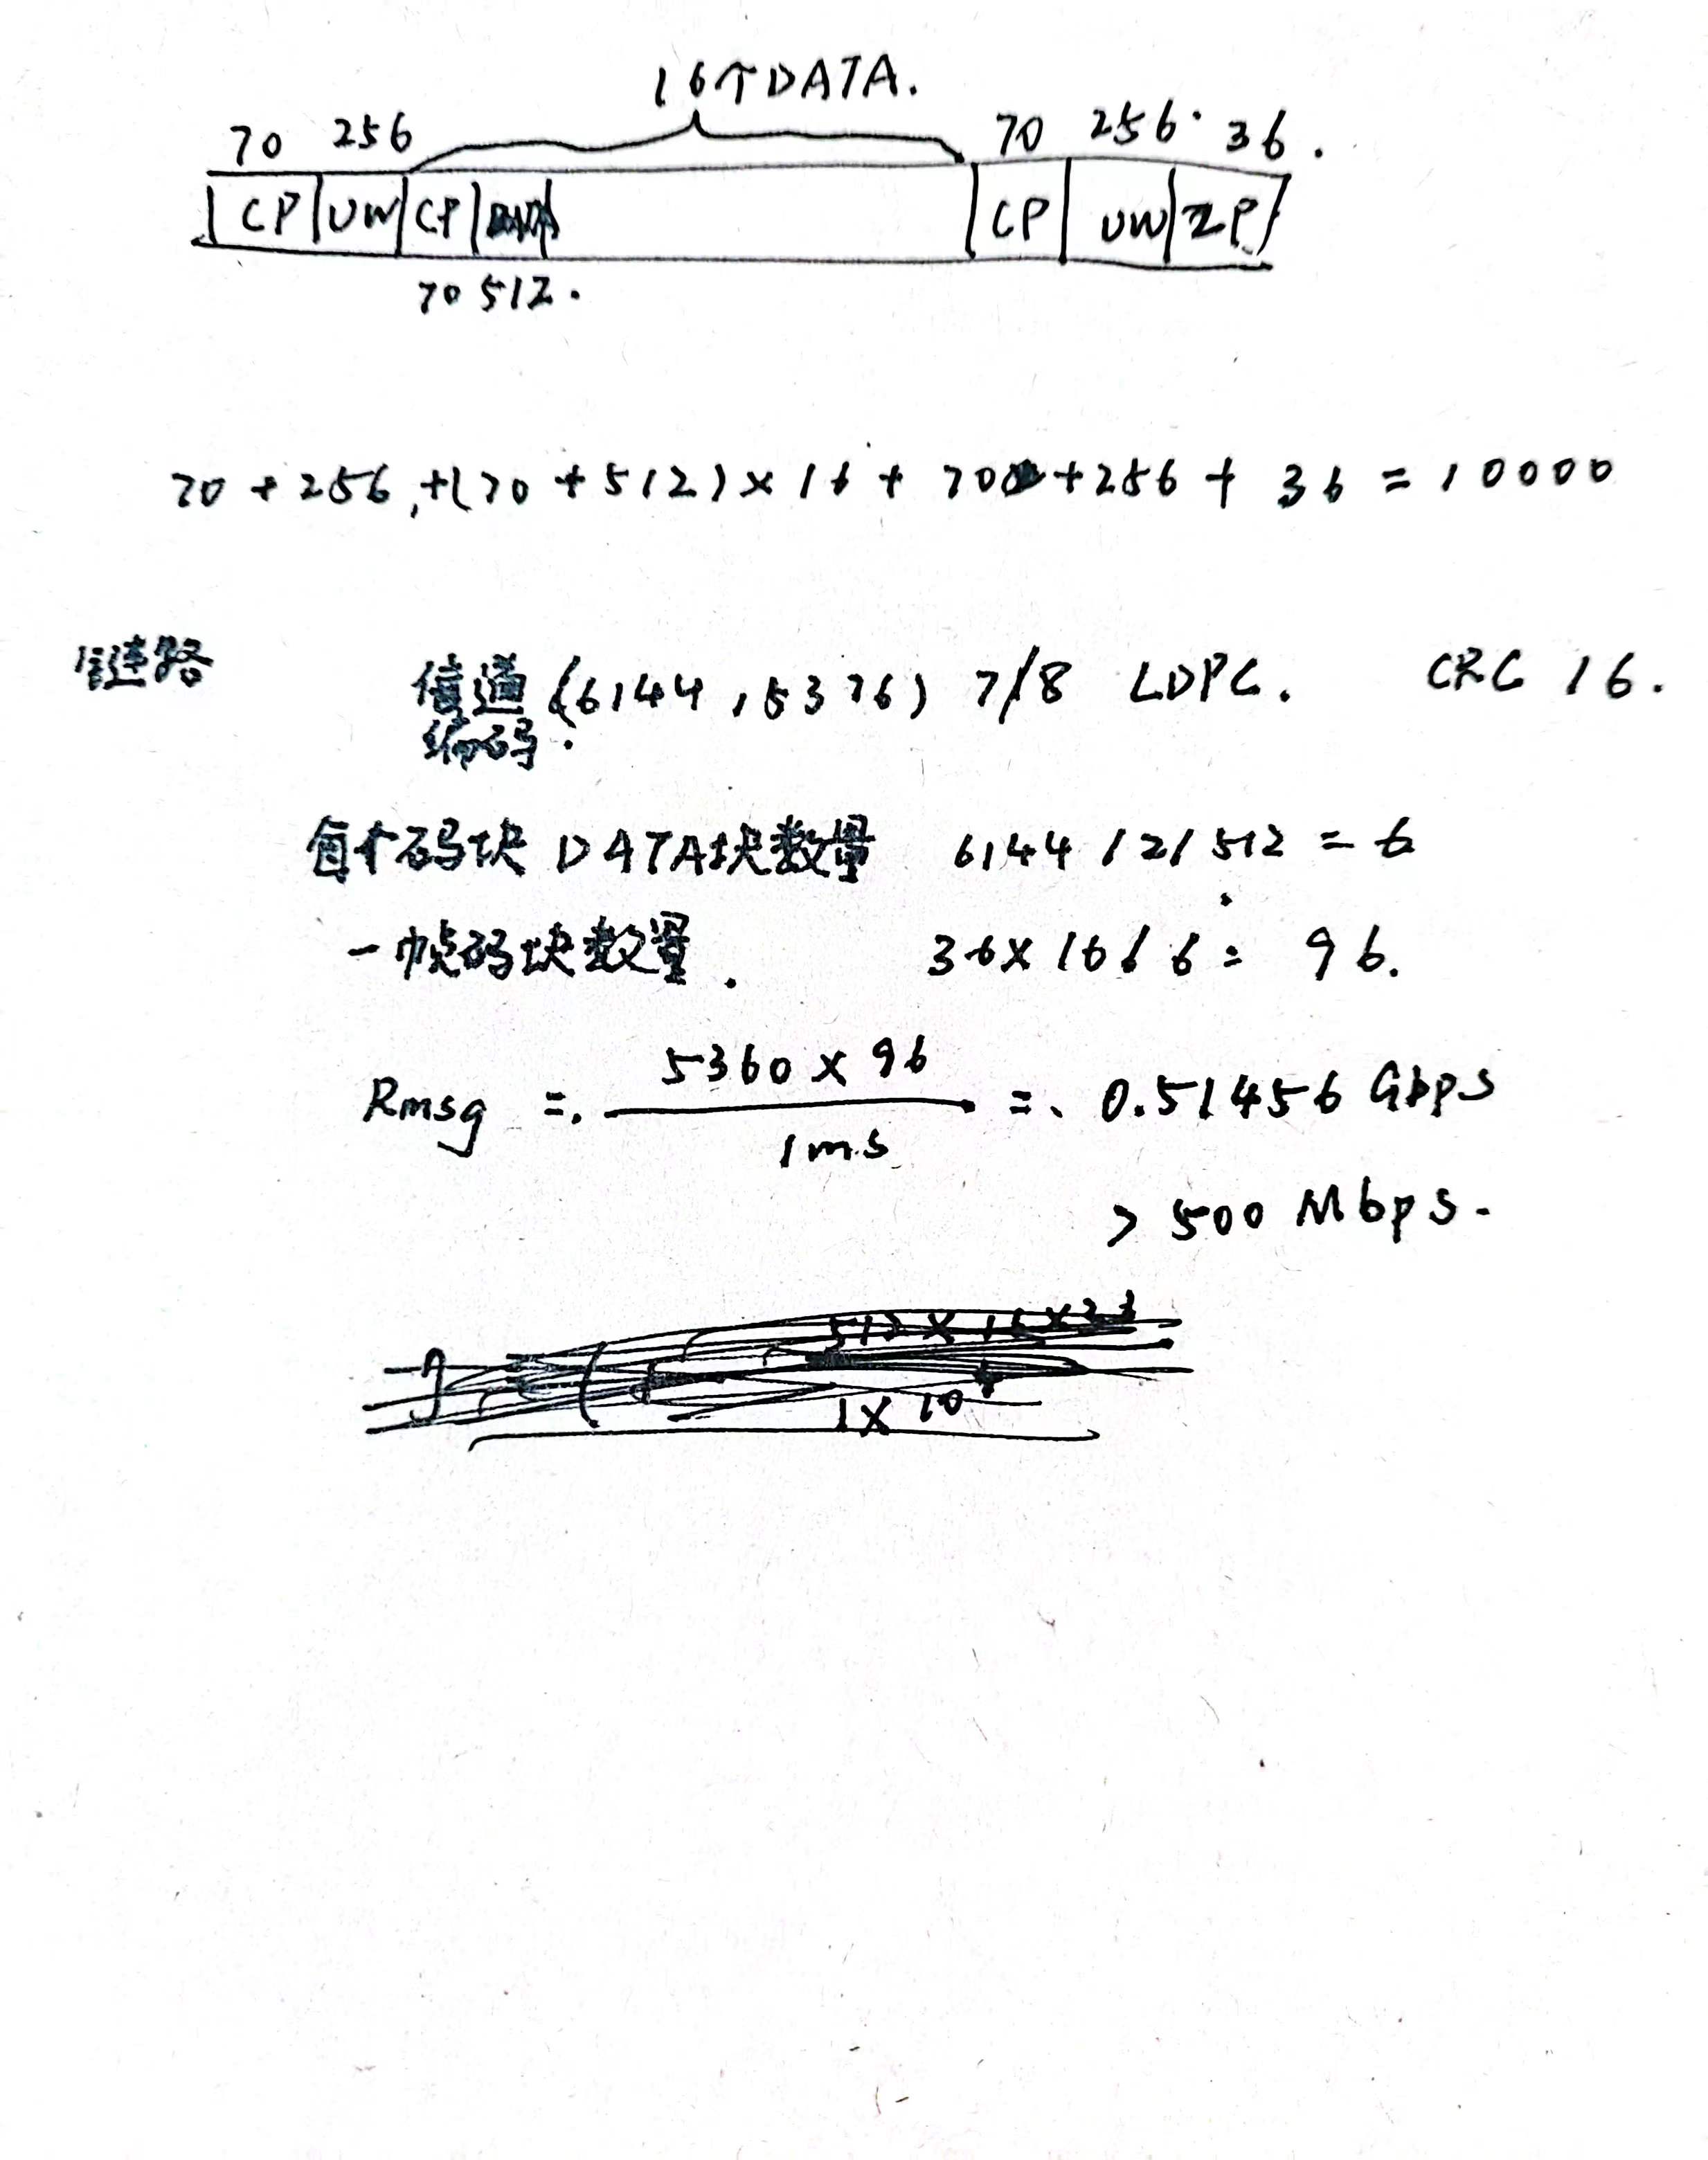 16个DATA.
70 256 70 256 36.
CP UW CP CP UW ZP
70 512.
70+256+(70+512)×16+70+256+36=10000
链路 信道(6144,5376) 7/8 LDPC. CRC 16.
编码:
每个码块DATA块数量 6144/2/512=6
一帧码块数量. 36×16/6=96.
5360×96
Rmsg = = 0.51456 Gbps
1ms
> 500 Mbps.